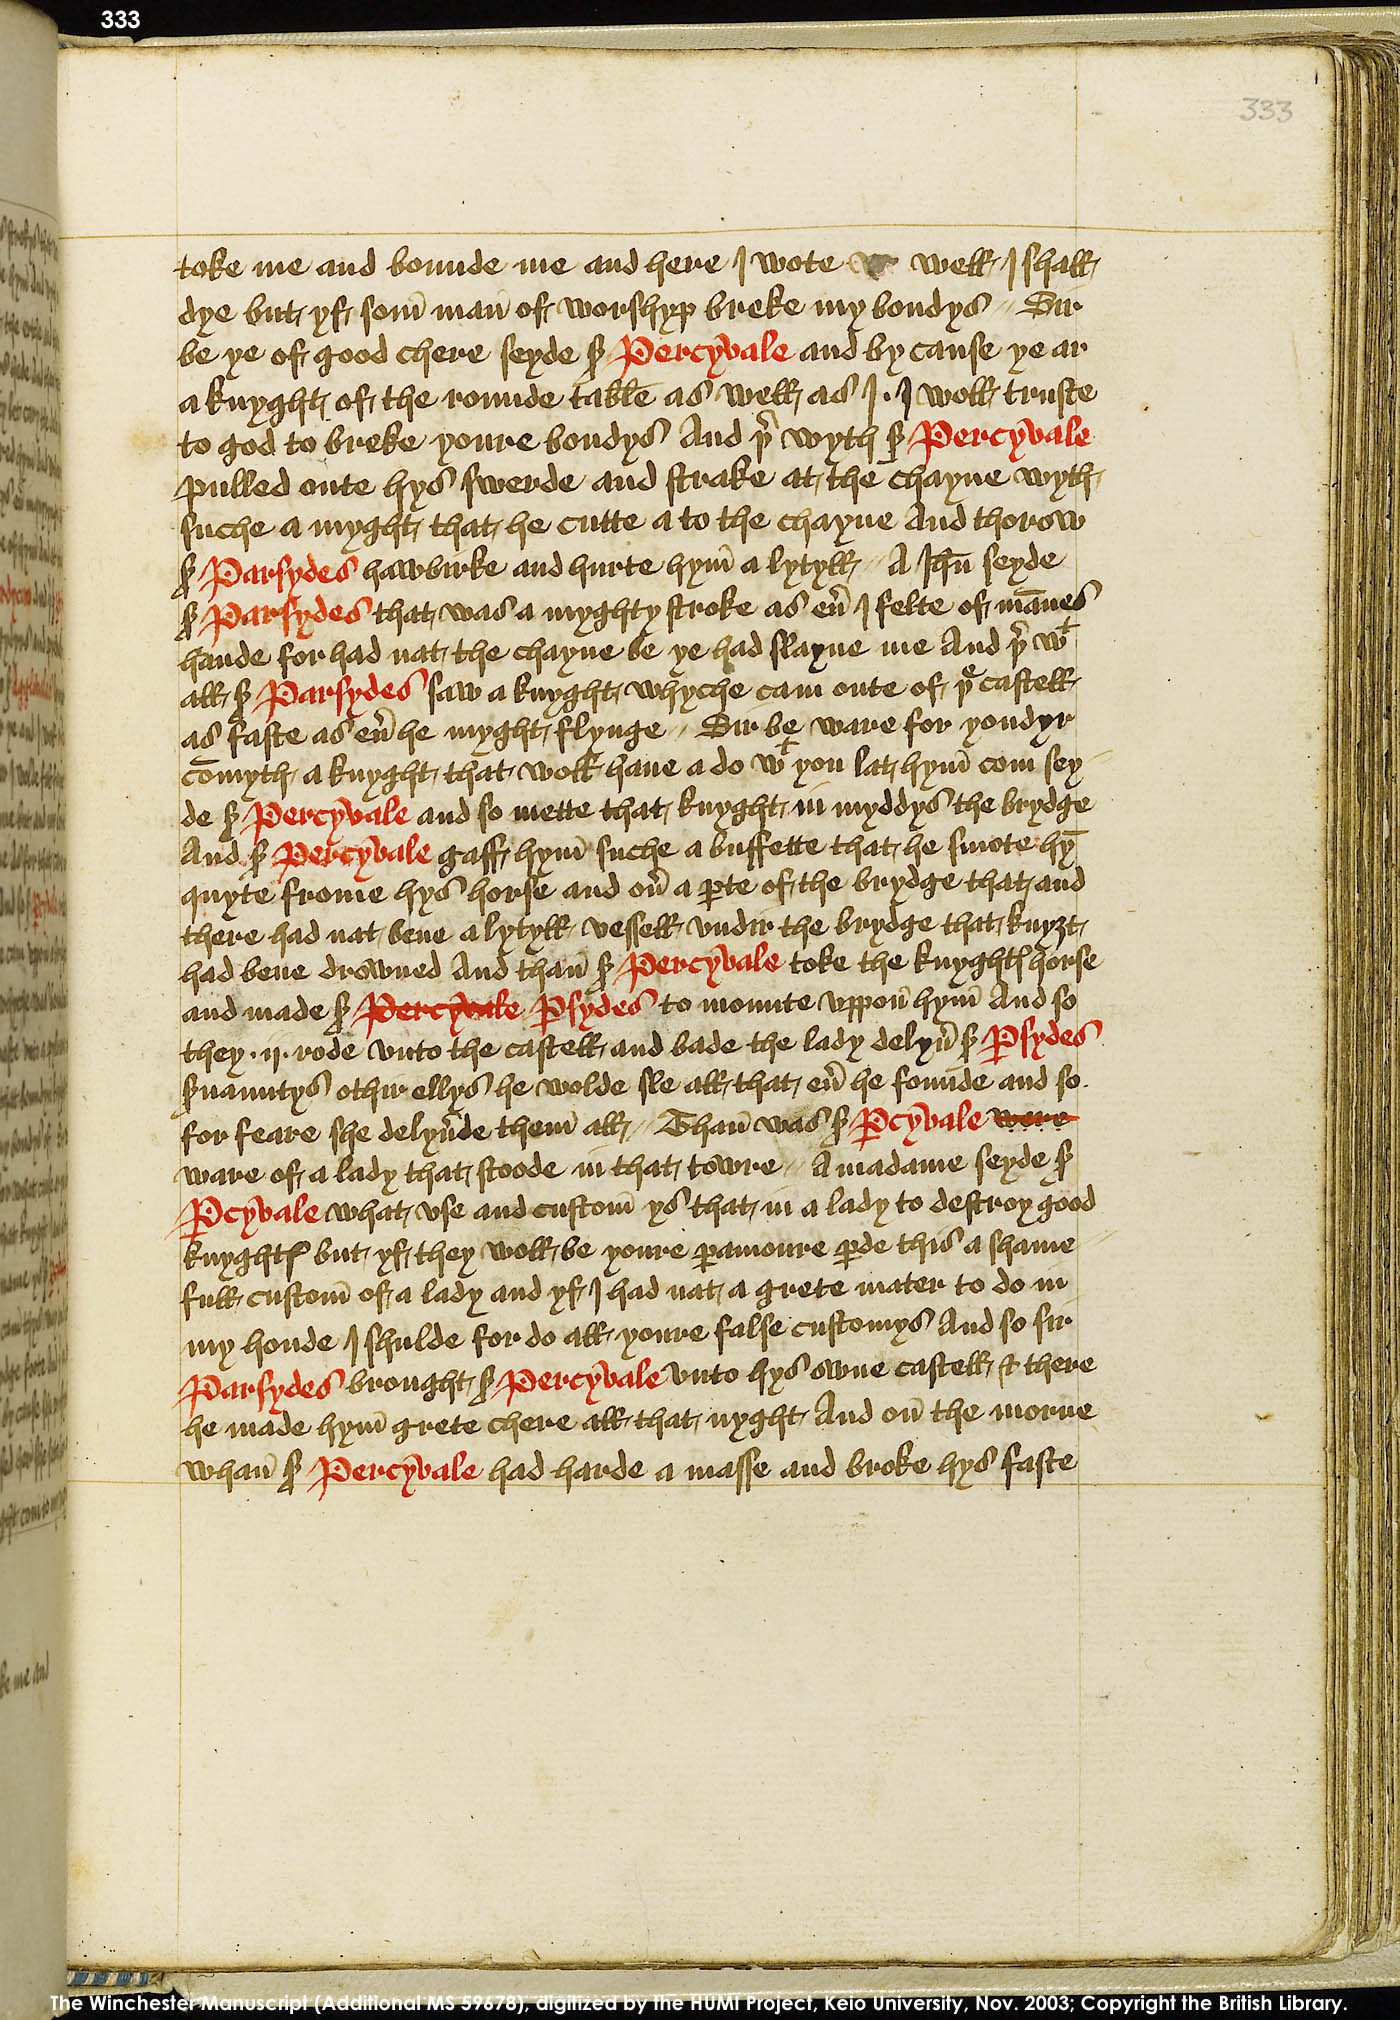 333
333
toke me and bounde me and here I wote well I shall
dye but yf som̄ man̄ of worshyp breke my bondys // Sir
be ye of good chere seyde sʳ Percyvale and by cause ye ar
a knyght of the rounde table as well as I · I woll truste
to god to breke youre bondys And þʳ wyth sʳ Percyvale
pulled oute hys swerde and strake at the chayne wyth
suche a myght that he cutte a to the chayne And thorow
sʳ Parsydes hawbirke and hurte hym̄ a lytyll // A Ihū seyde
sʳ Parsydes that was a myghty stroke as eṽ I felte of mānes
hande for had nat the chayne be ye had slayne me And þʳ wᵗ
all sʳ Parsydes saw a knyght whyche cam oute of þᵉ castell
as faste as eṽ he myght flynge // Sir be ware for yondyr
cōmyth a knyght that woll haue a do wᵗ you lat hym̄ com sey
de sʳ Percyvale and so mette that knyght in myddys the brydge
And sʳ Percyvale gaff hym̄ suche a buffette that he smote hȳ
quyte frome hys horse and oṽ a ꝑte of the brydge that and
there had nat bene a lytyll vessell vndir the brydge that knyȝt
had bene drowned And than̄ sʳ Percyvale toke the knyghtꝭ horse
and made sʳ Percyvale Ꝑsydes to mounte vppon̄ hym̄ And so
they · ij · rode vnto the castell and bade the lady delyṽ sʳ Ꝑsydes
sʳuauntys othir ellys he wolde sle all that eṽ he founde and so
for feare she delyṽde them̄ all // Than̄ was sʳ Ꝑcyvale were
ware of a lady that stoode in that towre // A madame seyde sʳ
Ꝑcyvale what vse and custom̄ ys that in a lady to destroy good
knyghtꝭ but yf they woll be youre ꝑamoure ꝑde this a shame
full custom̄ of a lady and yf I had nat a grete mater to do in
my honde I shulde for do all youre false customys And so sir
Parsydes brought sʳ Percyvale vnto hys owne castell & there
he made hym̄ grete chere all that nyght And on̄ the morne
whan̄ sʳ Percyvale had harde a masse and broke hys faste
The Winchester Manuscript (Additional MS 59678), digitized by the HUMI Project, Keio University, Nov. 2003; Copyright the British Library.